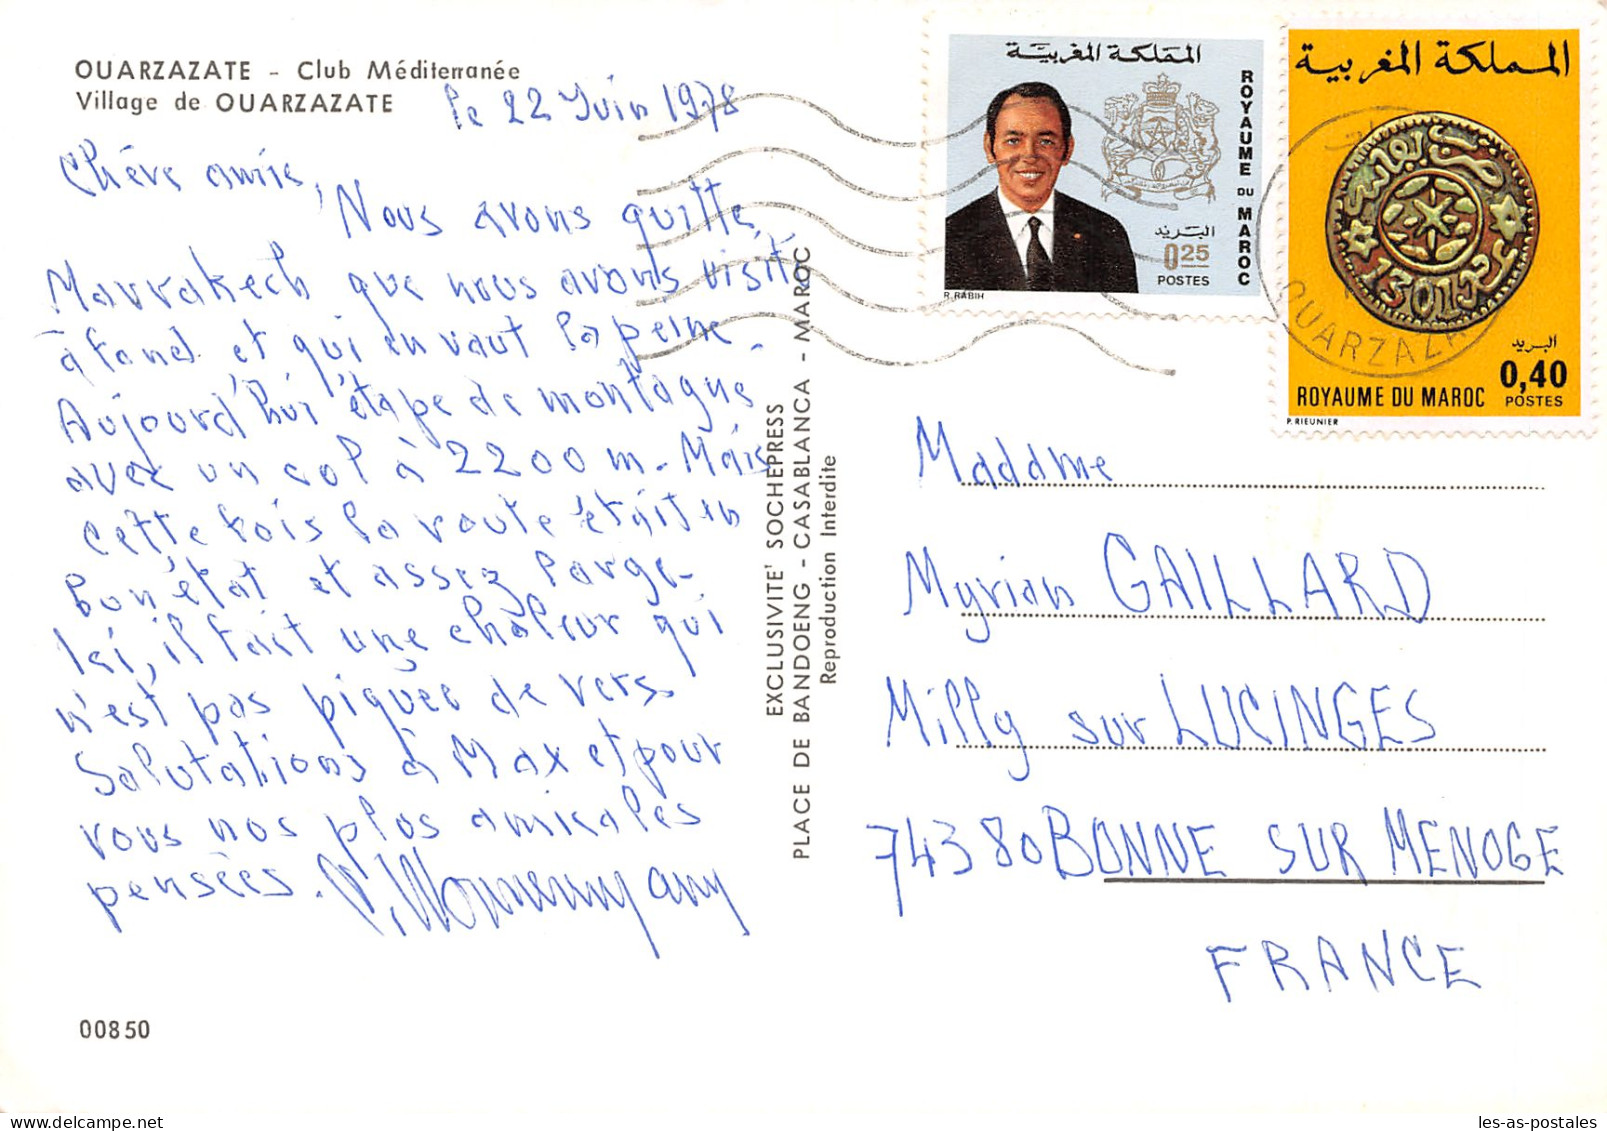 OUARZAZATE - Club Méditerranée
Village de OUARZAZATE
le 22 Juin 1978
Chère amie,
Nous avons quitté
Marrakech que nous avons visité
à fond et qui en vaut la peine.
Aujourd'hui étape de montagne
avec un col à 2200 m. Mais
cette fois la route était en
bon état et assez large.
Ici, il fait une chaleur qui
n'est pas piquée de vers.
Salutations à Max et pour
vous nos plus amicales
pensées.
00850
EXCLUSIVITE' SOCHEPRESS
PLACE DE BANDOENG - CASABLANCA - MAROC
Reproduction Interdite
المملكة المغربية
ROYAUME DU MAROC
البريد
0,25
POSTES
R. RABIH
المملكة المغربية
1301
البريد
0,40
POSTES
ROYAUME DU MAROC
P. RIEUNIER
OUARZAZA
Maddme
Myrian GAILLARD
Milly sur LUCINGES
74380 BONNE SUR MENOGE
FRANCE
les-as-postales